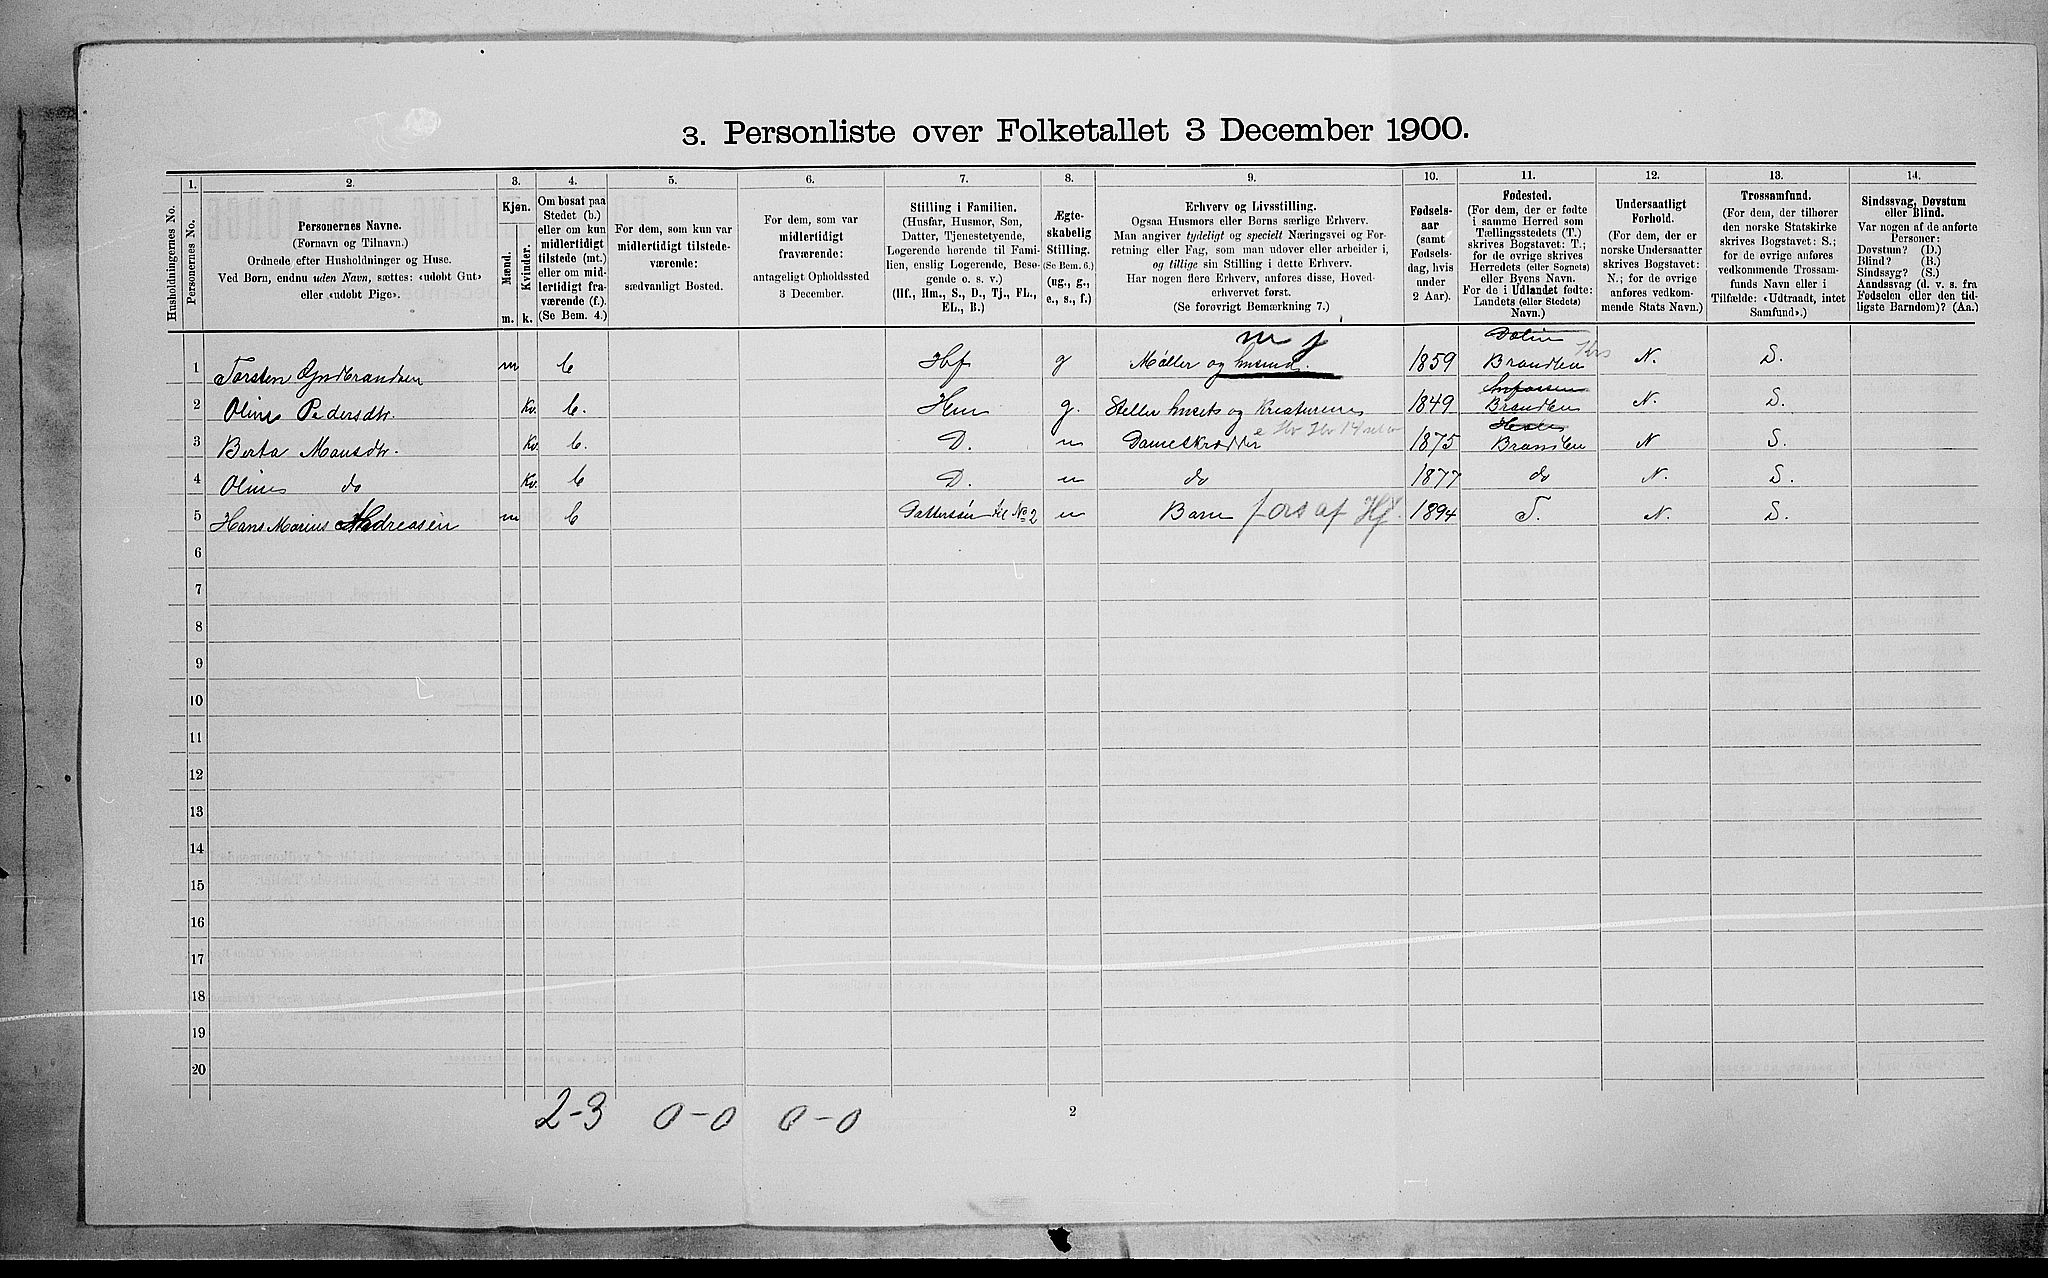 3. Personliste over Folketallet 3 December 1900.
Husholdningernes No.
1.
Personernes No.
2.
Personernes Navne.
(Fornavn og Tilnavn.)
Ordnede efter Husholdninger og Huse.
Ved Børn, endnu uden Navn, sættes: «udøbt Gut»
eller «udøbt Pige».
3.
Kjøn.
Mænd.
Kvinder.
m.
k.
4.
Om bosat paa
Stedet (b.)
eller om kun
midlertidigt
tilstede (mt.)
eller om mid-
lertidigt fra-
værende (f.).
(Se Bem. 4.)
5.
For dem, som kun var
midlertidigt tilstede-
værende:
sædvanligt Bosted.
6.
For dem, som var
midlertidigt
fraværende:
antageligt Opholdssted
3 December.
7.
Stilling i Familien.
(Husfar, Husmor, Søn,
Datter, Tjenestetyende,
Logerende hørende til Fami-
lien, enslig Logerende, Besø-
gende o. s. v.)
(Hf., Hm., S., D., Tj., FL.,
EL., B.)
8.
Ægte-
skabelig
Stilling.
(Se Bem. 6.)
(ug., g.,
e., s., f.)
9.
Erhverv og Livsstilling.
Ogsaa Husmors eller Børns særlige Erhverv.
Man angiver tydeligt og specielt Næringsvei og For-
retning eller Fag, som man udøver eller arbeider i,
og tillige sin Stilling i dette Erhverv.
Har nogen flere Erhverv, anføres disse, Hoved-
erhvervet først.
(Se forøvrigt Bemærkning 7.)
10.
Fødsels-
aar
(samt
Fødsels-
dag, hvis
under
2 Aar).
11.
Fødested.
(For dem, der er fødte
i samme Herred som
Tællingsstedets (T.)
skrives Bogstavet: T.;
for de øvrige skrives
Herredets (eller Sognets)
eller Byens Navn.
For de i Udlandet fødte:
Landets (eller Stedets)
Navn.)
12.
Undersaatligt
Forhold.
(For dem, der er
norske Undersaatter
skrives Bogstavet:
N.; for de øvrige
anføres vedkom-
mende Stats Navn.)
13.
Trossamfund.
(For dem, der tilhører
den norske Statskirke
skrives Bogstavet: S.;
for de øvrige anføres
vedkommende Trossam-
funds Navn eller i
Tilfælde: «Udtraadt, intet
Samfund».)
14.
Sindssvag, Døvstum
eller Blind.
Var nogen af de anførte
Personer:
Døvstum? (D.)
Blind? (B.)
Sindssyg? (S.)
Aandssvag (d. v. s. fra
Fødselen eller den tid-
ligste Barndom)? (Aa.)
m j
1 Torsten Gudbrandsen m b Hf g Møller og husmd. 1859 Brandbu N. S.
2 Oline Pedersdtr. Kv. b. Hm g. Steller husets og Kreaturene 1849 Brandbu N. S.
3 Berta Monsdtr. Kv. b. D. u Dameskrædder 1875 Brandbu N S.
4 Oline do Kv. b D. u do 1877 do N. S.
5 Hans Marius Andreasen m b Dattersøn til No 2 u Barn fors af Hf. 1894 T. N. S.
6
7
8
9
10
11
12
13
14
15
16
17
18
19
20
2-3 0-0 0-0
2